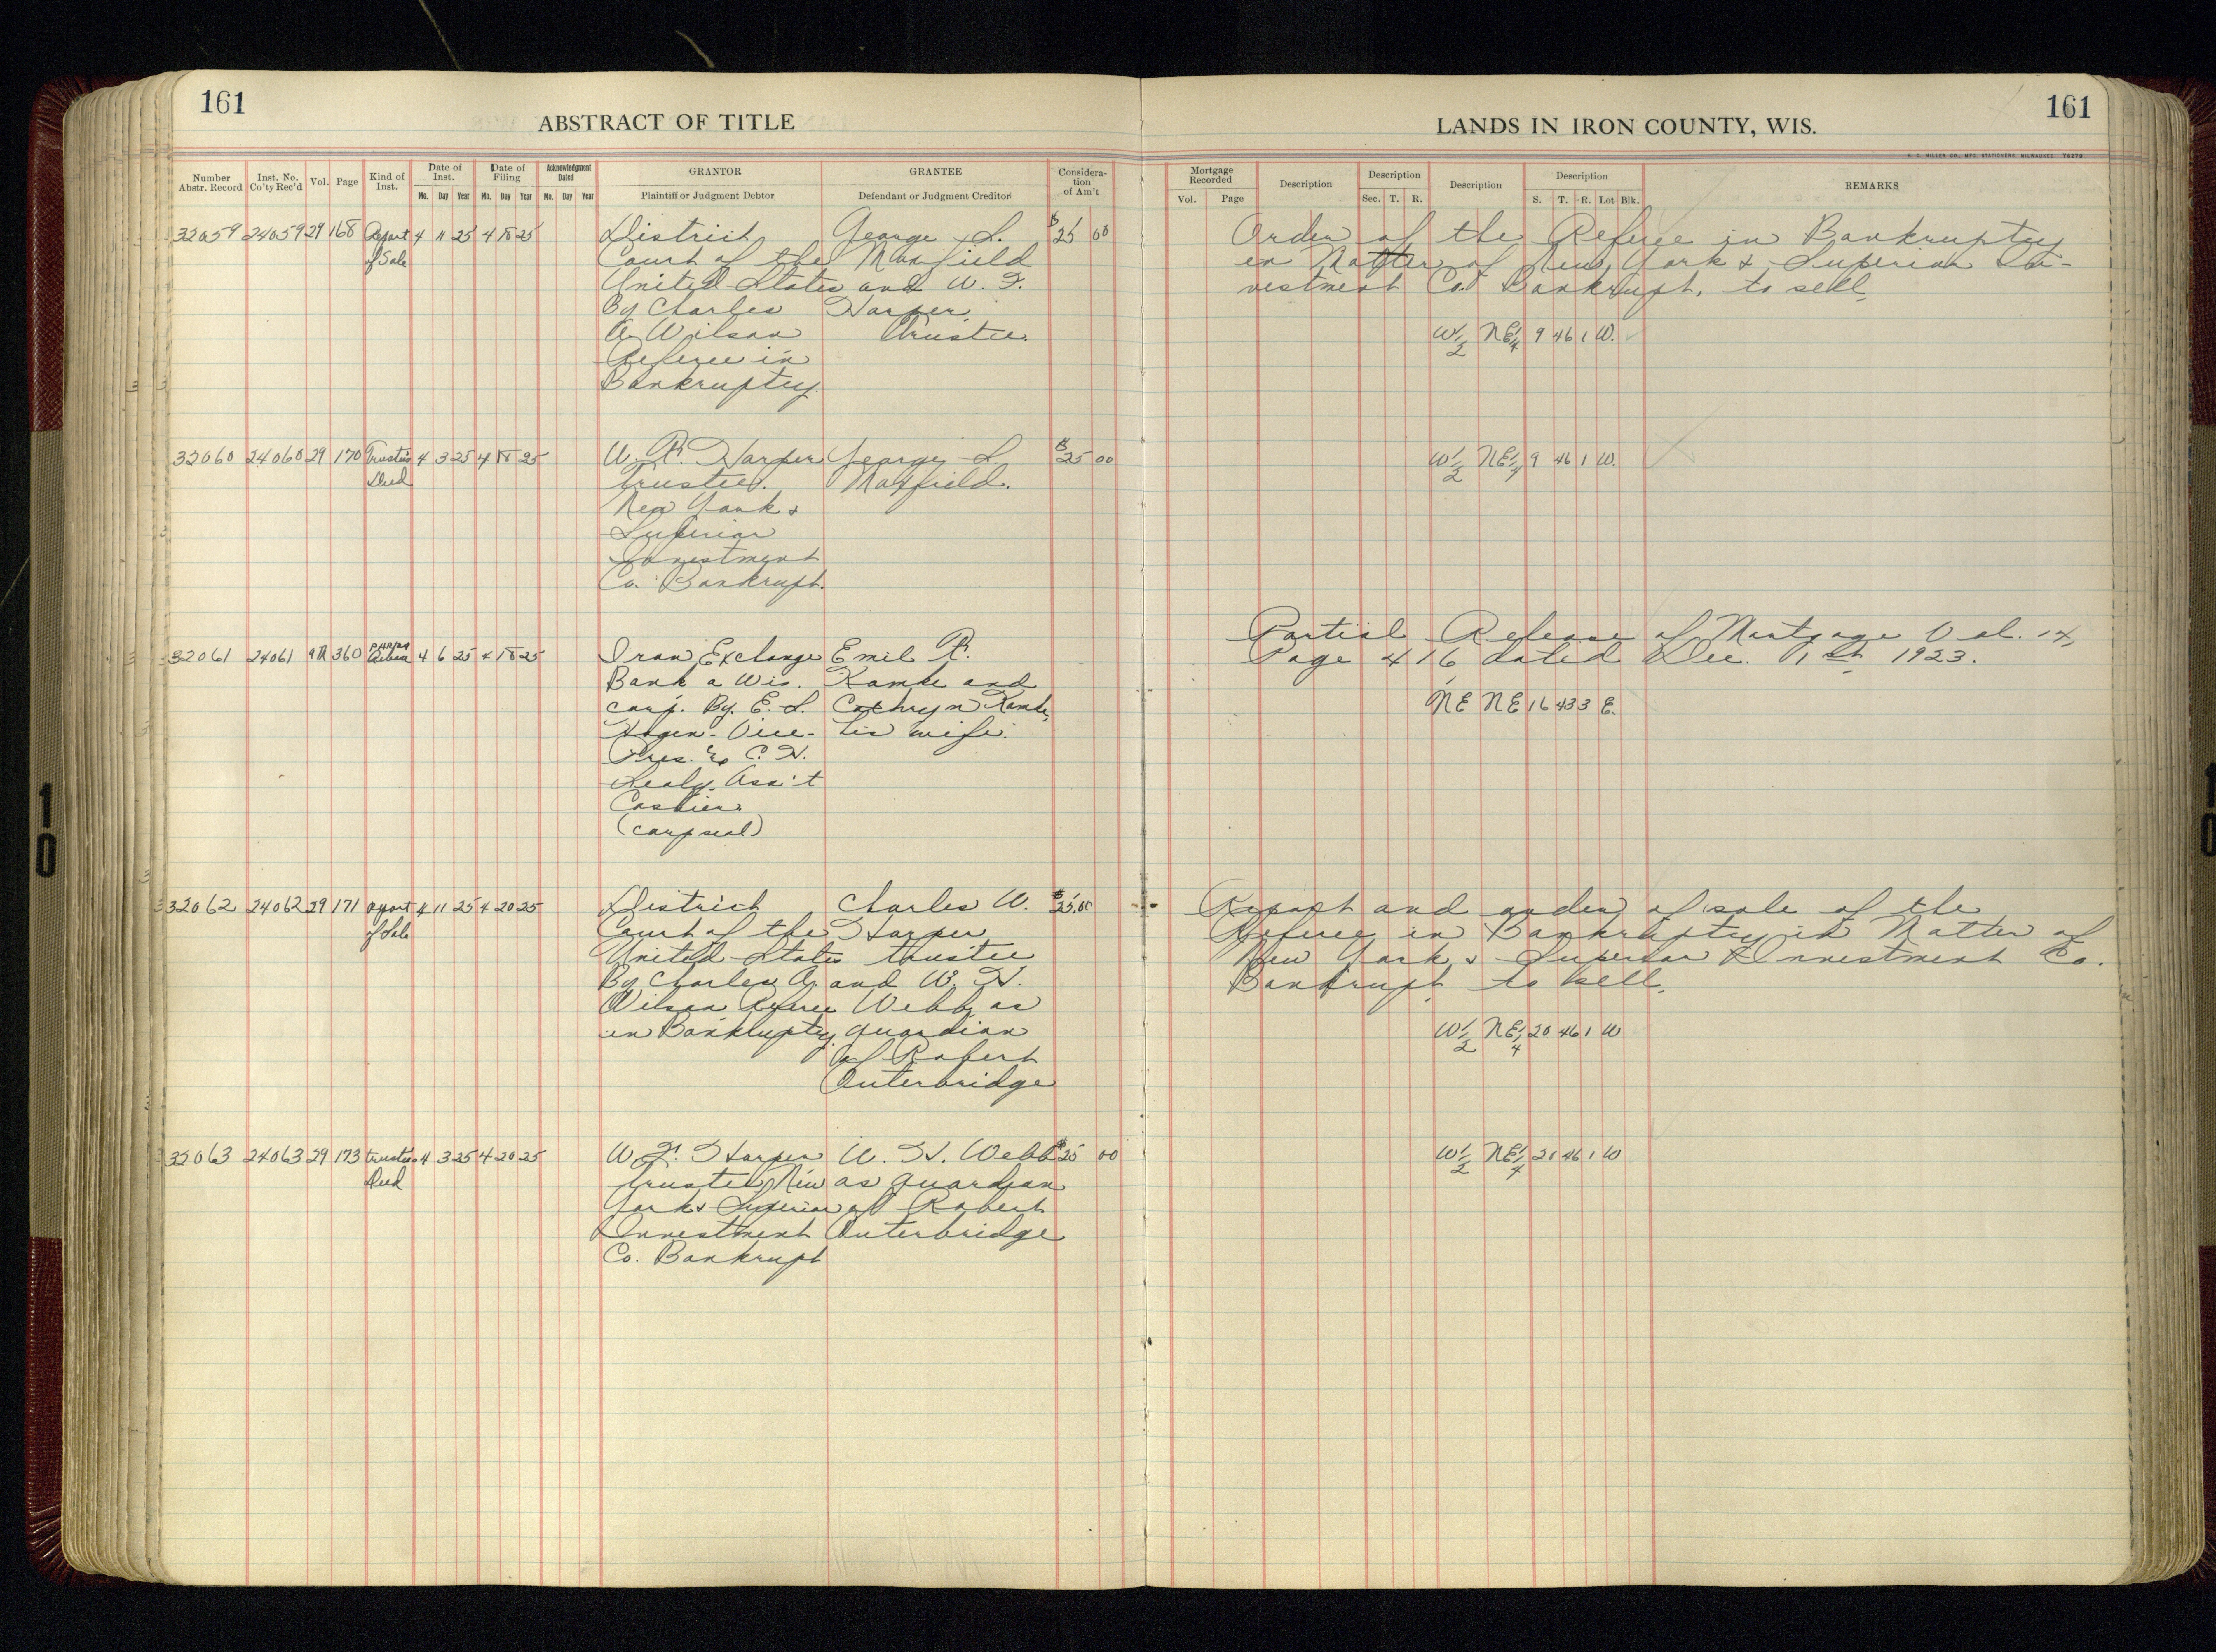 161
ABSTRACT OF TITLE
Number Abstr. Record Inst. No. Co'ty Rec'd Vol. Page Kind of Inst. Date of Inst. Date of Filing Acknowledgment Dated GRANTOR GRANTEE Considera-tion of Am't
Mo. Day Year Mo. Day Year Mo. Day Year Plaintiff or Judgment Debtor Defendant or Judgment Creditor
32059 24059 29 168 Report 4 11 25 4 18 25 District George L. $25 00
of Sale Court of the Maxfield
United States and W. F.
By Charles Harper
A. Wilson Trustee.
Referee in
Bankruptcy.
32060 24060 29 170 Trustee's 4 3 25 4 18 25 W. F. Harper George L. $25 00
Deed trustee. Maxfield.
New York &
Superior
Investment
Co. Bankrupt.
32061 24061 360 Partial Release 4 6 25 4 18 25 Iron Exchange Emil R.
Bank a Wis. Kamke and
corp. By. E. L. Cathryn Kamke,
Vice- his wife.
Pres. & C. H.
Ass't
Cashier.
(corp seal)
32062 24062 29 171 report 4 11 25 4 20 25 District Charles W. $25.00
of Sale Court of the Harper
United States trustee
By Charles A. and W. H.
Wilson Referee Webb as
in Bankruptcy. guardian
of Robert
Outerbridge
32063 24063 29 173 trustees 4 3 25 4 20 25 W. F. Harper W. H. Webb $25 00
Deed trustee New as guardian
York & Superior of Robert
Investment Outerbridge
Co. Bankrupt
LANDS IN IRON COUNTY, WIS.
161
H. C. MILLER CO., MFG. STATIONERS, MILWAUKEE
Mortgage Recorded Description Description Description Description REMARKS
Vol. Page Sec. T. R. S. T. R. Lot Blk.
Order of the Referee in Bankruptcy
in Matter of New York & Superior In-
vestment Co. Bankrupt, to sell.
W 1/2 NE 1/4 9 46 1 W.
W 1/2 NE 1/4 9 46 1 W.
Partial Release of Mortgage Vol. 14,
Page 416 dated Dec. 1st 1923.
NE NE 16 43 3 E.
Report and order of sale of the
Referee in Bankruptcy in Matter of
New York & Superior Investment Co.
Bankrupt to sell.
W 1/2 NE 1/4 20 46 1 W
W 1/2 NE 1/4 20 46 1 W